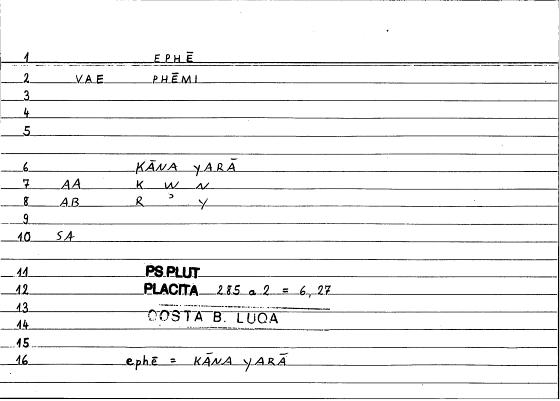 1 EPHĒ
2 VAE PHĒMI
3
4
5
6 KĀNA yARĀ
7 AA K W N
8 AB R ʾ Y
9
10 SA
11 PS.PLUT
12 PLACITA 285 a 2 = 6, 27
13
COSTA B. LUQA
14
15
16 ephē = KĀNA yARĀ